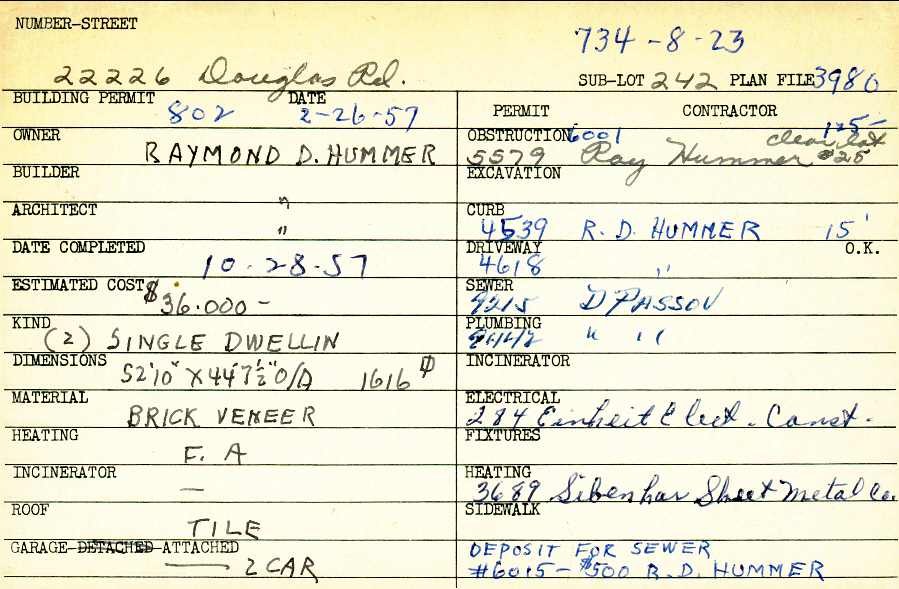 NUMBER-STREET
734-8-23
22226 Douglas Rd.
SUB-LOT 242 PLAN FILE 3980
BUILDING PERMIT 802 DATE 2-26-57
PERMIT CONTRACTOR
OWNER RAYMOND D. HUMMER
OBSTRUCTION 6001 125-
clear lot
5579 Ray Hummer #25
BUILDER "
EXCAVATION
ARCHITECT "
CURB 4539 R. D. HUMMER 15'
DATE COMPLETED 10-28-57
DRIVEWAY 4618 " O.K.
ESTIMATED COST $36.000-
SEWER 9215 D PASSOV
KIND (2) SINGLE DWELLIN
PLUMBING " "
DIMENSIONS 52'10" X 44'7½" O/A 1616
INCINERATOR
MATERIAL BRICK VENEER
ELECTRICAL 284 Einheit Elect. Const.
HEATING F. A
FIXTURES
INCINERATOR —
HEATING 3689 Sibenhar Sheet Metal Co.
ROOF TILE
SIDEWALK
GARAGE-DETACHED-ATTACHED 2 CAR
DEPOSIT FOR SEWER
#6015-$500 R.D. HUMMER